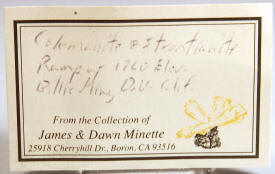 Colemanite & Strontianite
Ramp up 1760 Elev.
Billie Mine, Calif.
From the Collection of
James & Dawn Minette
25918 Cherryhill Dr., Boron, CA 93516